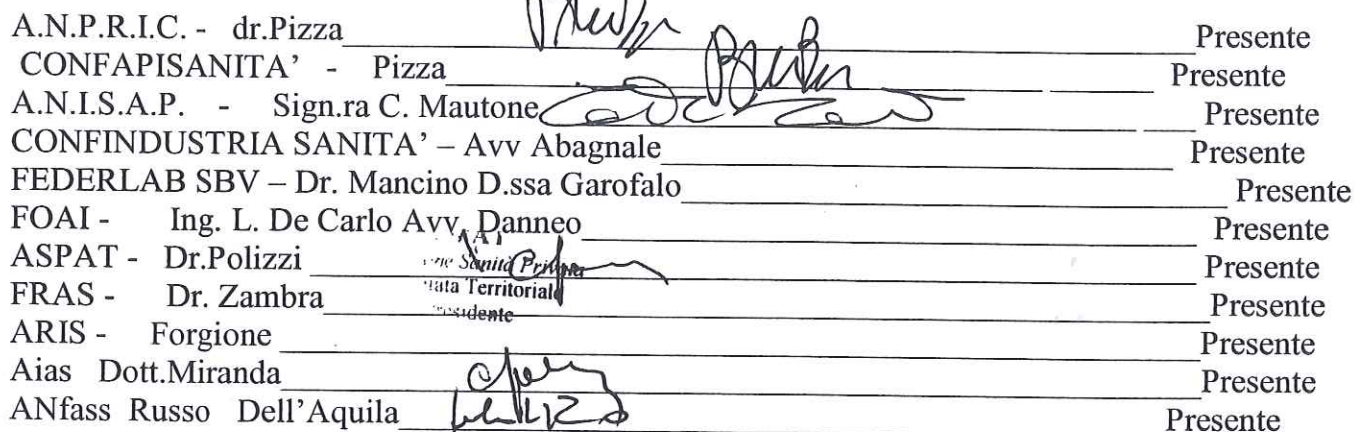 A.N.P.R.I.C. - dr.Pizza Presente
CONFAPISANITA’ - Pizza Presente
A.N.I.S.A.P. - Sign.ra C. Mautone Presente
CONFINDUSTRIA SANITA’ – Avv Abagnale Presente
FEDERLAB SBV – Dr. Mancino D.ssa Garofalo Presente
FOAI - Ing. L. De Carlo Avv. Danneo Presente
ASPAT - Dr.Polizzi Sanità Presente
Territorial
FRAS - Dr. Zambra Presente
ARIS - Forgione Presente
Aias Dott.Miranda Presente
ANfass Russo Dell’Aquila Presente